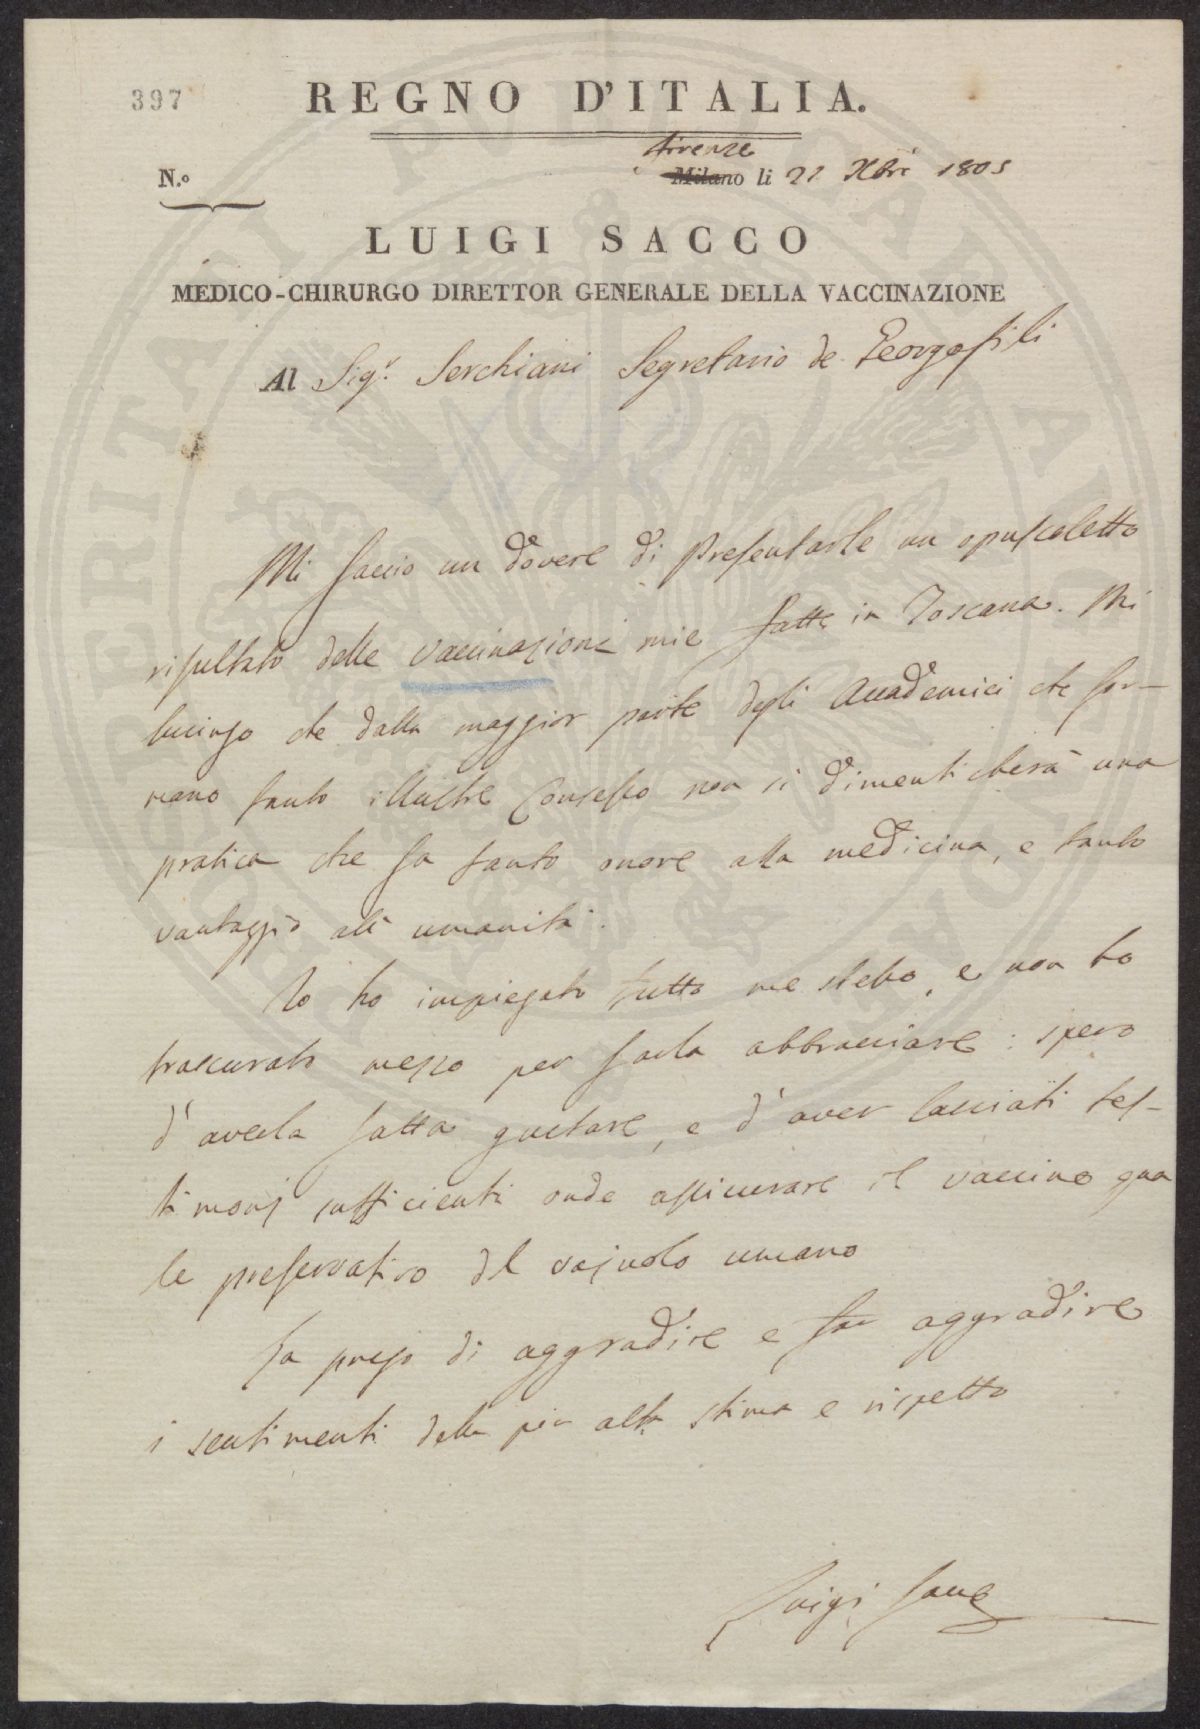 397
REGNO D'ITALIA.
Firenze
N.º Milano li 22 Xbrè 1805
LUIGI SACCO
MEDICO-CHIRURGO DIRETTOR GENERALE DELLA VACCINAZIONE
Al Sigr. Serchiani Segretario de Georgofili
Mi faccio un dovere di presentarle un opuscoletto
risultato delle vaccinazioni mie fatte in Toscana. Mi
lusingo che dalla maggior parte degli Accademici che for-
mano tanto illustre Consesso non si dimenticherà una
pratica che fa tanto onore alla medicina, e tanto
vantaggio all' umanità.
Io ho impiegato tutto me stesso, e non ho
trascurato mezzo per farla abbracciare: spero
d' averla fatta gustare, e d' aver lasciati tes-
timonj sufficienti onde assicurare il vaccino qua
le preservativo del vajuolo umano
La prego di aggradire e far aggradire
i sentimenti della più alta stima e rispetto
Luigi Sacco